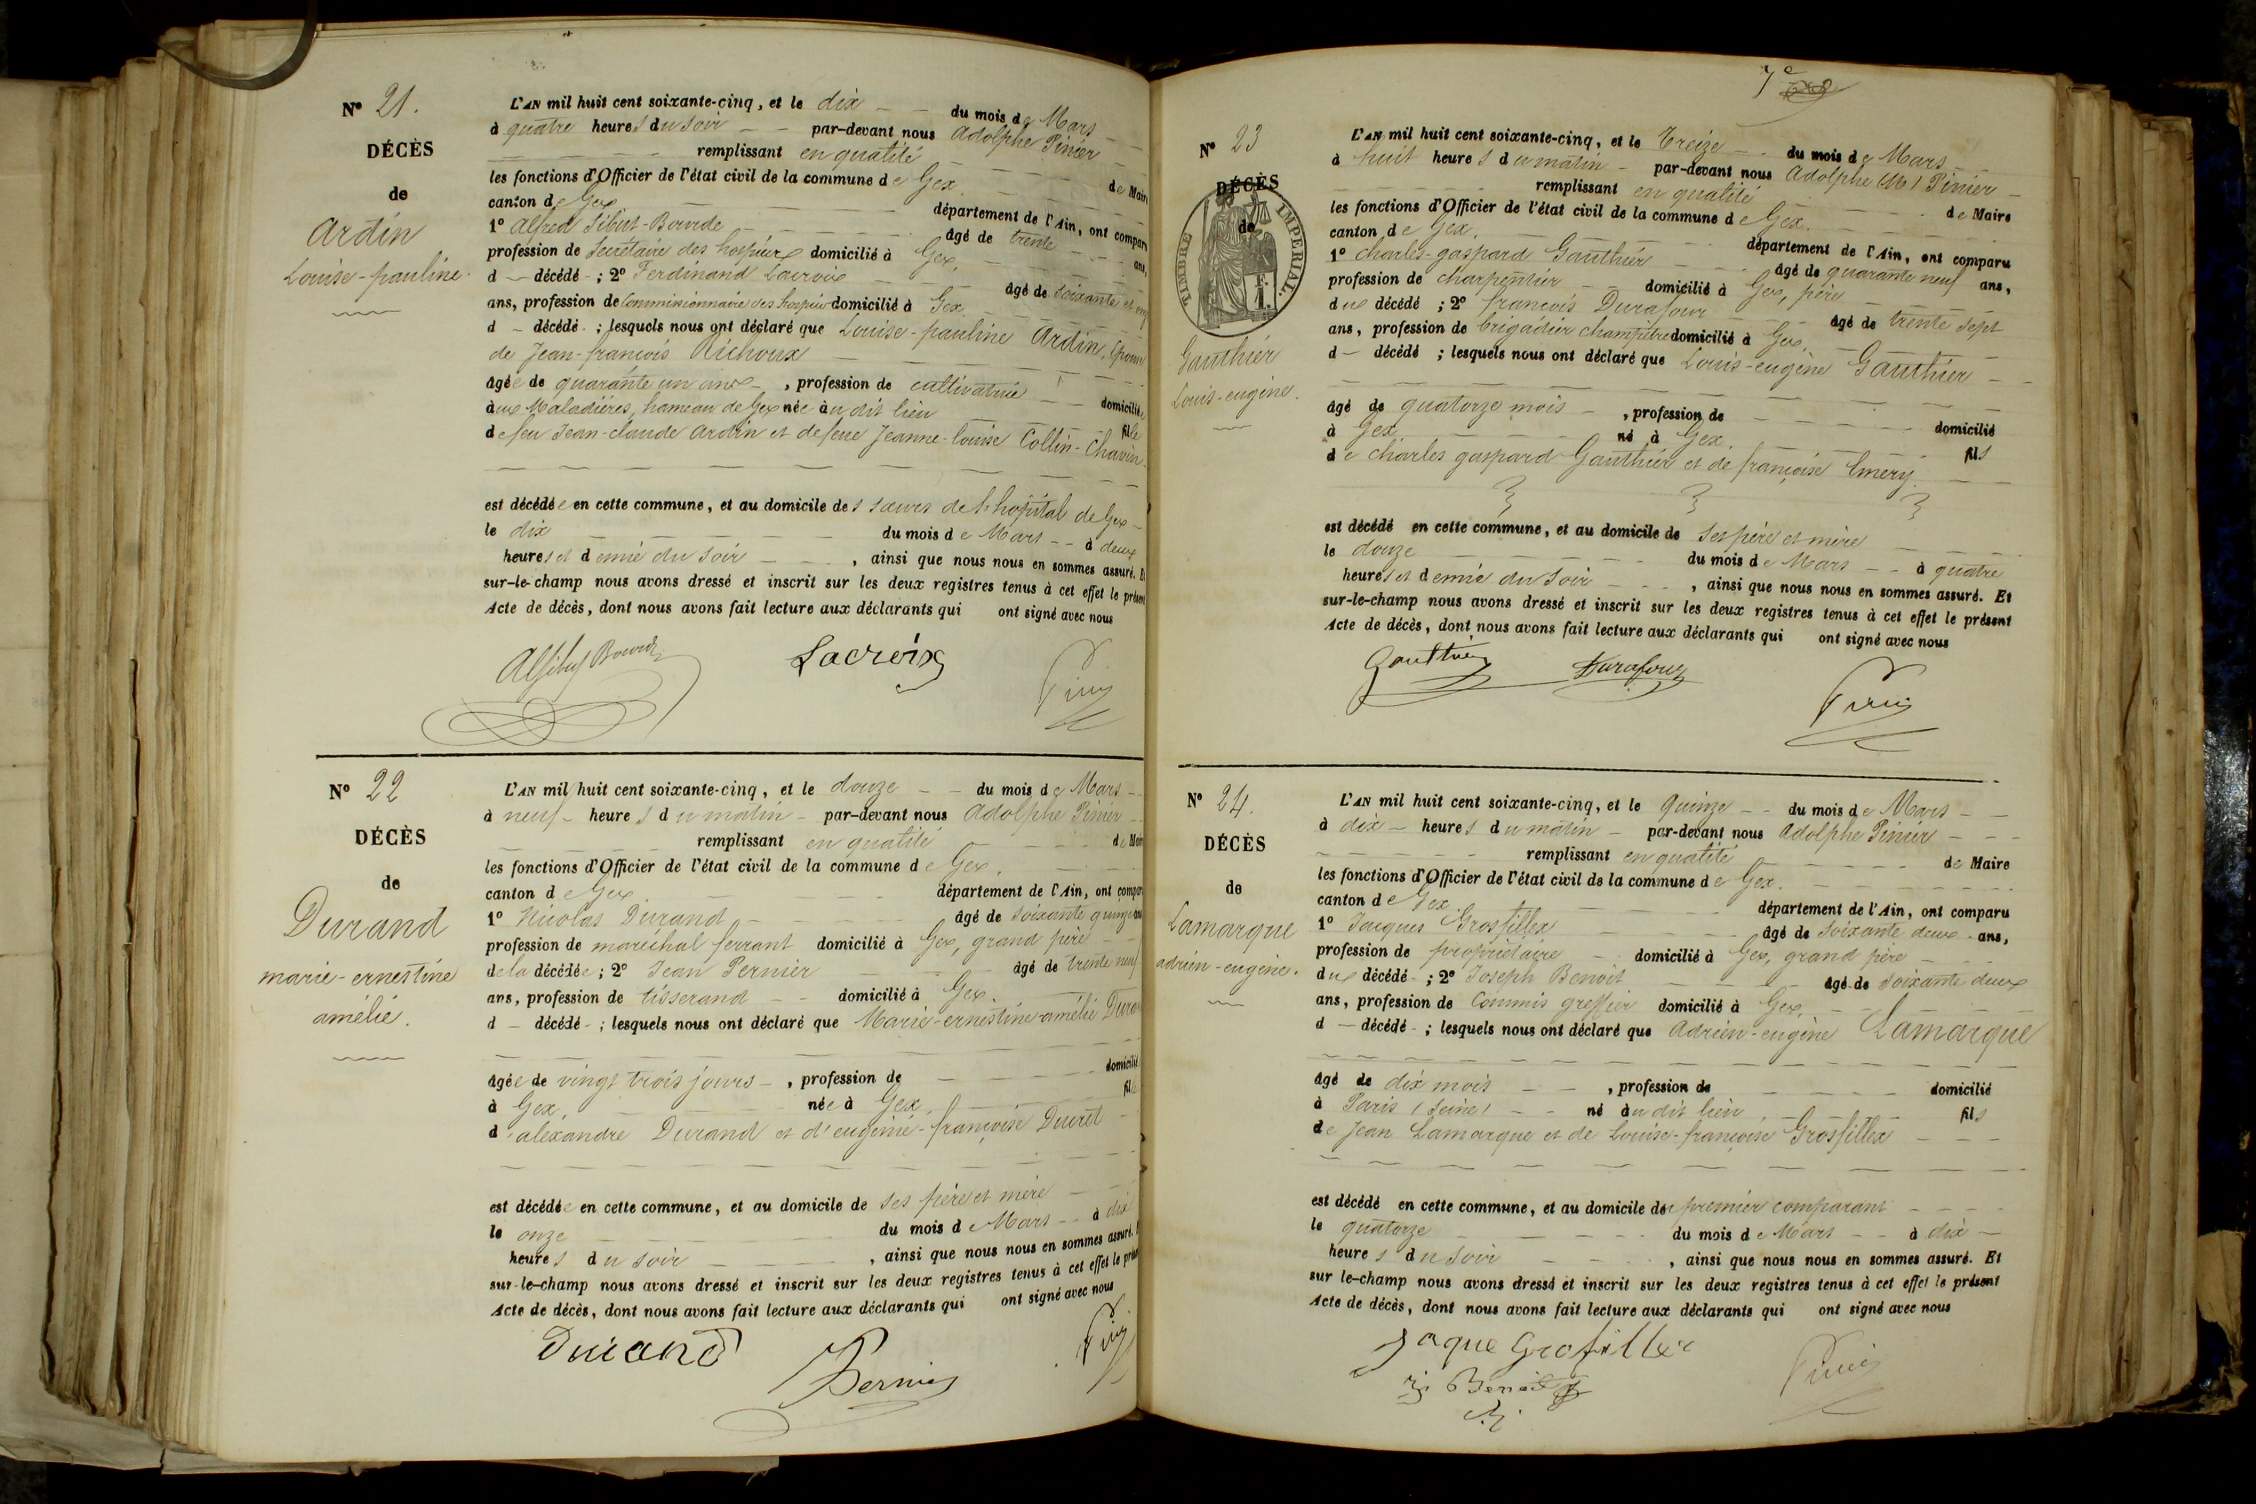 N° 21.
DÉCÈS
de
Ardin
Louise-pauline.
L'AN mil huit cent soixante-cinq, et le dix du mois de Mars
à quatre heures du soir par-devant nous Adolphe Pinier
remplissant en qualité de Maire
les fonctions d'Officier de l'état civil de la commune de Gex
canton de Gex département de l'Ain, ont comparu
1° Alfred Sibut-Bourde âgé de trente ans,
profession de Secrétaire des hospices domicilié à Gex,
d décédé ; 2° Ferdinand Lacroix âgé de soixante et
ans, profession de Commissionnaire des hospices domicilié à Gex
d décédé ; lesquels nous ont déclaré que Louise-pauline Ardin, épouse
de Jean-françois Richoux
âgée de quarante un ans, profession de cultivatrice domiciliée
aux Maladières, hameau de Gex née au dit lieu fille
de feu Jean-claude Ardin et de feue Jeanne-louise Collin-Chavin
est décédée en cette commune, et au domicile des sœurs de l'hôpital de Gex
le dix du mois de Mars à deux
heures et demie du soir, ainsi que nous nous en sommes assuré. Et
sur-le-champ nous avons dressé et inscrit sur les deux registres tenus à cet effet le présent
Acte de décès, dont nous avons fait lecture aux déclarants qui ont signé avec nous
Lacroix
N° 22
DÉCÈS
de
Durand
marie-ernestine
amélie.
L'AN mil huit cent soixante-cinq, et le douze du mois de Mars
à neuf heures du matin par-devant nous Adolphe Pinier
remplissant en qualité de Maire
les fonctions d'Officier de l'état civil de la commune de Gex.
canton de Gex département de l'Ain, ont comparu
1° Nicolas Durand âgé de soixante quinze ans
profession de maréchal ferrant domicilié à Gex, grand père
de la décédée ; 2° Jean Pernier âgé de trente neuf
ans, profession de tisserand domicilié à Gex.
d décédé ; lesquels nous ont déclaré que Marie-ernestine-amélie Durand
âgée de vingt trois jours, profession de domicilié
à Gex, née à Gex, fille
d'alexandre Durand et d'eugénie-françoise Ducret
est décédée en cette commune, et au domicile de ses père et mère
le onze du mois de Mars à dix
heures du soir, ainsi que nous nous en sommes assuré.
sur-le-champ nous avons dressé et inscrit sur les deux registres tenus à cet effet le présent
Acte de décès, dont nous avons fait lecture aux déclarants qui ont signé avec nous
Durand
Pernier
7e
N° 23
DÉCÈS
de
TIMBRE IMPÉRIAL
Gauthier
Louis-eugène.
L'AN mil huit cent soixante-cinq, et le Treize du mois de Mars
à huit heures du matin par-devant nous Adolphe (M) Pinier
remplissant en qualité de Maire
les fonctions d'Officier de l'état civil de la commune de Gex.
canton de Gex. département de l'Ain, ont comparu
1° charles-gaspard Gauthier âgé de quarante neuf ans,
profession de charpentier domicilié à Gex, père
du décédé ; 2° françois Durafour âgé de trente sept
ans, profession de brigadier champêtre domicilié à Gex,
d décédé ; lesquels nous ont déclaré que Louis-eugène Gauthier
âgé de quatorze mois, profession de domicilié
à Gex né à Gex. fils
de charles gaspard Gauthier et de françoise Emery.
est décédé en cette commune, et au domicile de ses père et mère
le douze du mois de Mars à quatre
heures et demie du soir, ainsi que nous nous en sommes assuré. Et
sur-le-champ nous avons dressé et inscrit sur les deux registres tenus à cet effet le présent
Acte de décès, dont nous avons fait lecture aux déclarants qui ont signé avec nous
Gauthier
Durafour
N° 24.
DÉCÈS
de
Lamarque
adrien-eugène.
L'AN mil huit cent soixante-cinq, et le quinze du mois de Mars
à dix heures du matin par-devant nous Adolphe Pinier
remplissant en qualité de Maire
les fonctions d'Officier de l'état civil de la commune de Gex.
canton de Gex. département de l'Ain, ont comparu
1° Jacques Grosfillex âgé de soixante deux ans,
profession de propriétaire domicilié à Gex, grand père
du décédé ; 2° Joseph Benoit âgé de soixante deux
ans, profession de Commis greffier domicilié à Gex,
d décédé ; lesquels nous ont déclaré que Adrien-eugène Lamarque
âgé de dix mois, profession de domicilié
à Paris (Seine) né au dit lieu, fils
de Jean Lamarque et de Louise-françoise Grosfillex
est décédé en cette commune, et au domicile du premier comparant
le quatorze du mois de Mars à dix
heures du soir, ainsi que nous nous en sommes assuré. Et
sur le-champ nous avons dressé et inscrit sur les deux registres tenus à cet effet le présent
Acte de décès, dont nous avons fait lecture aux déclarants qui ont signé avec nous
Jaque Grosfillex
Benoit